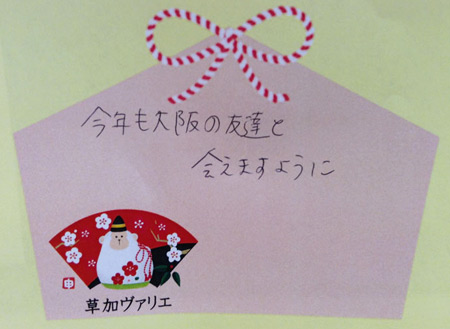 今年も大阪の友達と
会えますように
申
草加ヴァリエ